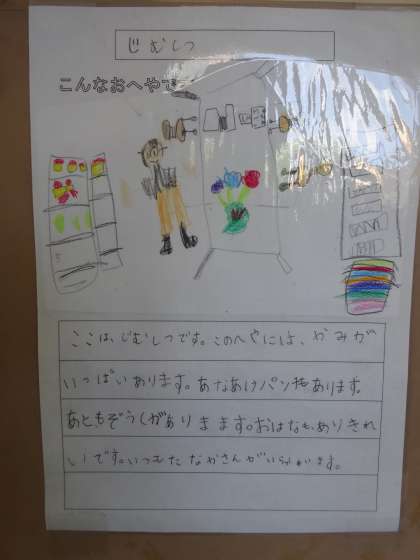 じむしつ
こんなおへやで
ここは、じむしつです。このへやには、かみが
いっぱいあります。あなあけパンチもあります。
あともぞうしがありまます。おはなもありきれ
いです。いつもたなかさんがいます。